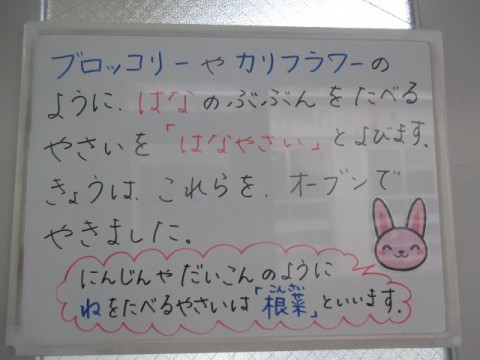 ブロッコリーやカリフラワーの
ように、はなのぶぶんをたべる
やさいを「はなやさい」とよびます。
きょうは、これらを、オーブンで
やきました。
にんじんやだいこんのように
こんさい
ねをたべるやさいは「根菜」といいます。